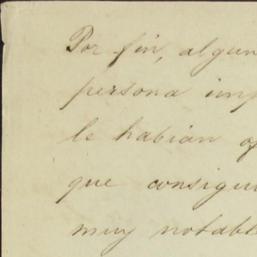 Por fin, algun
persona imp
le habian of
que consigui
muy notabl